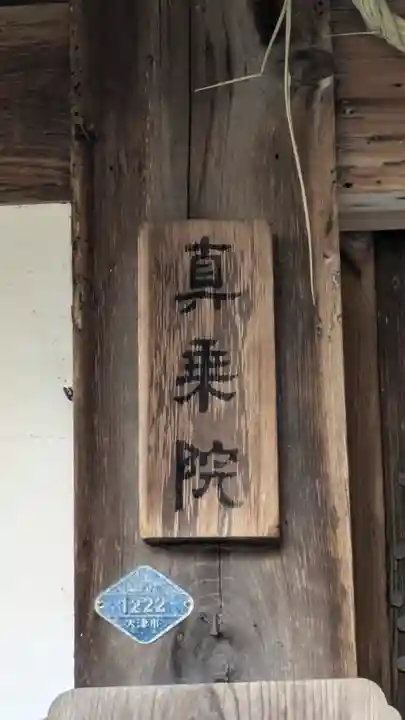 真乗院
1222
大津市